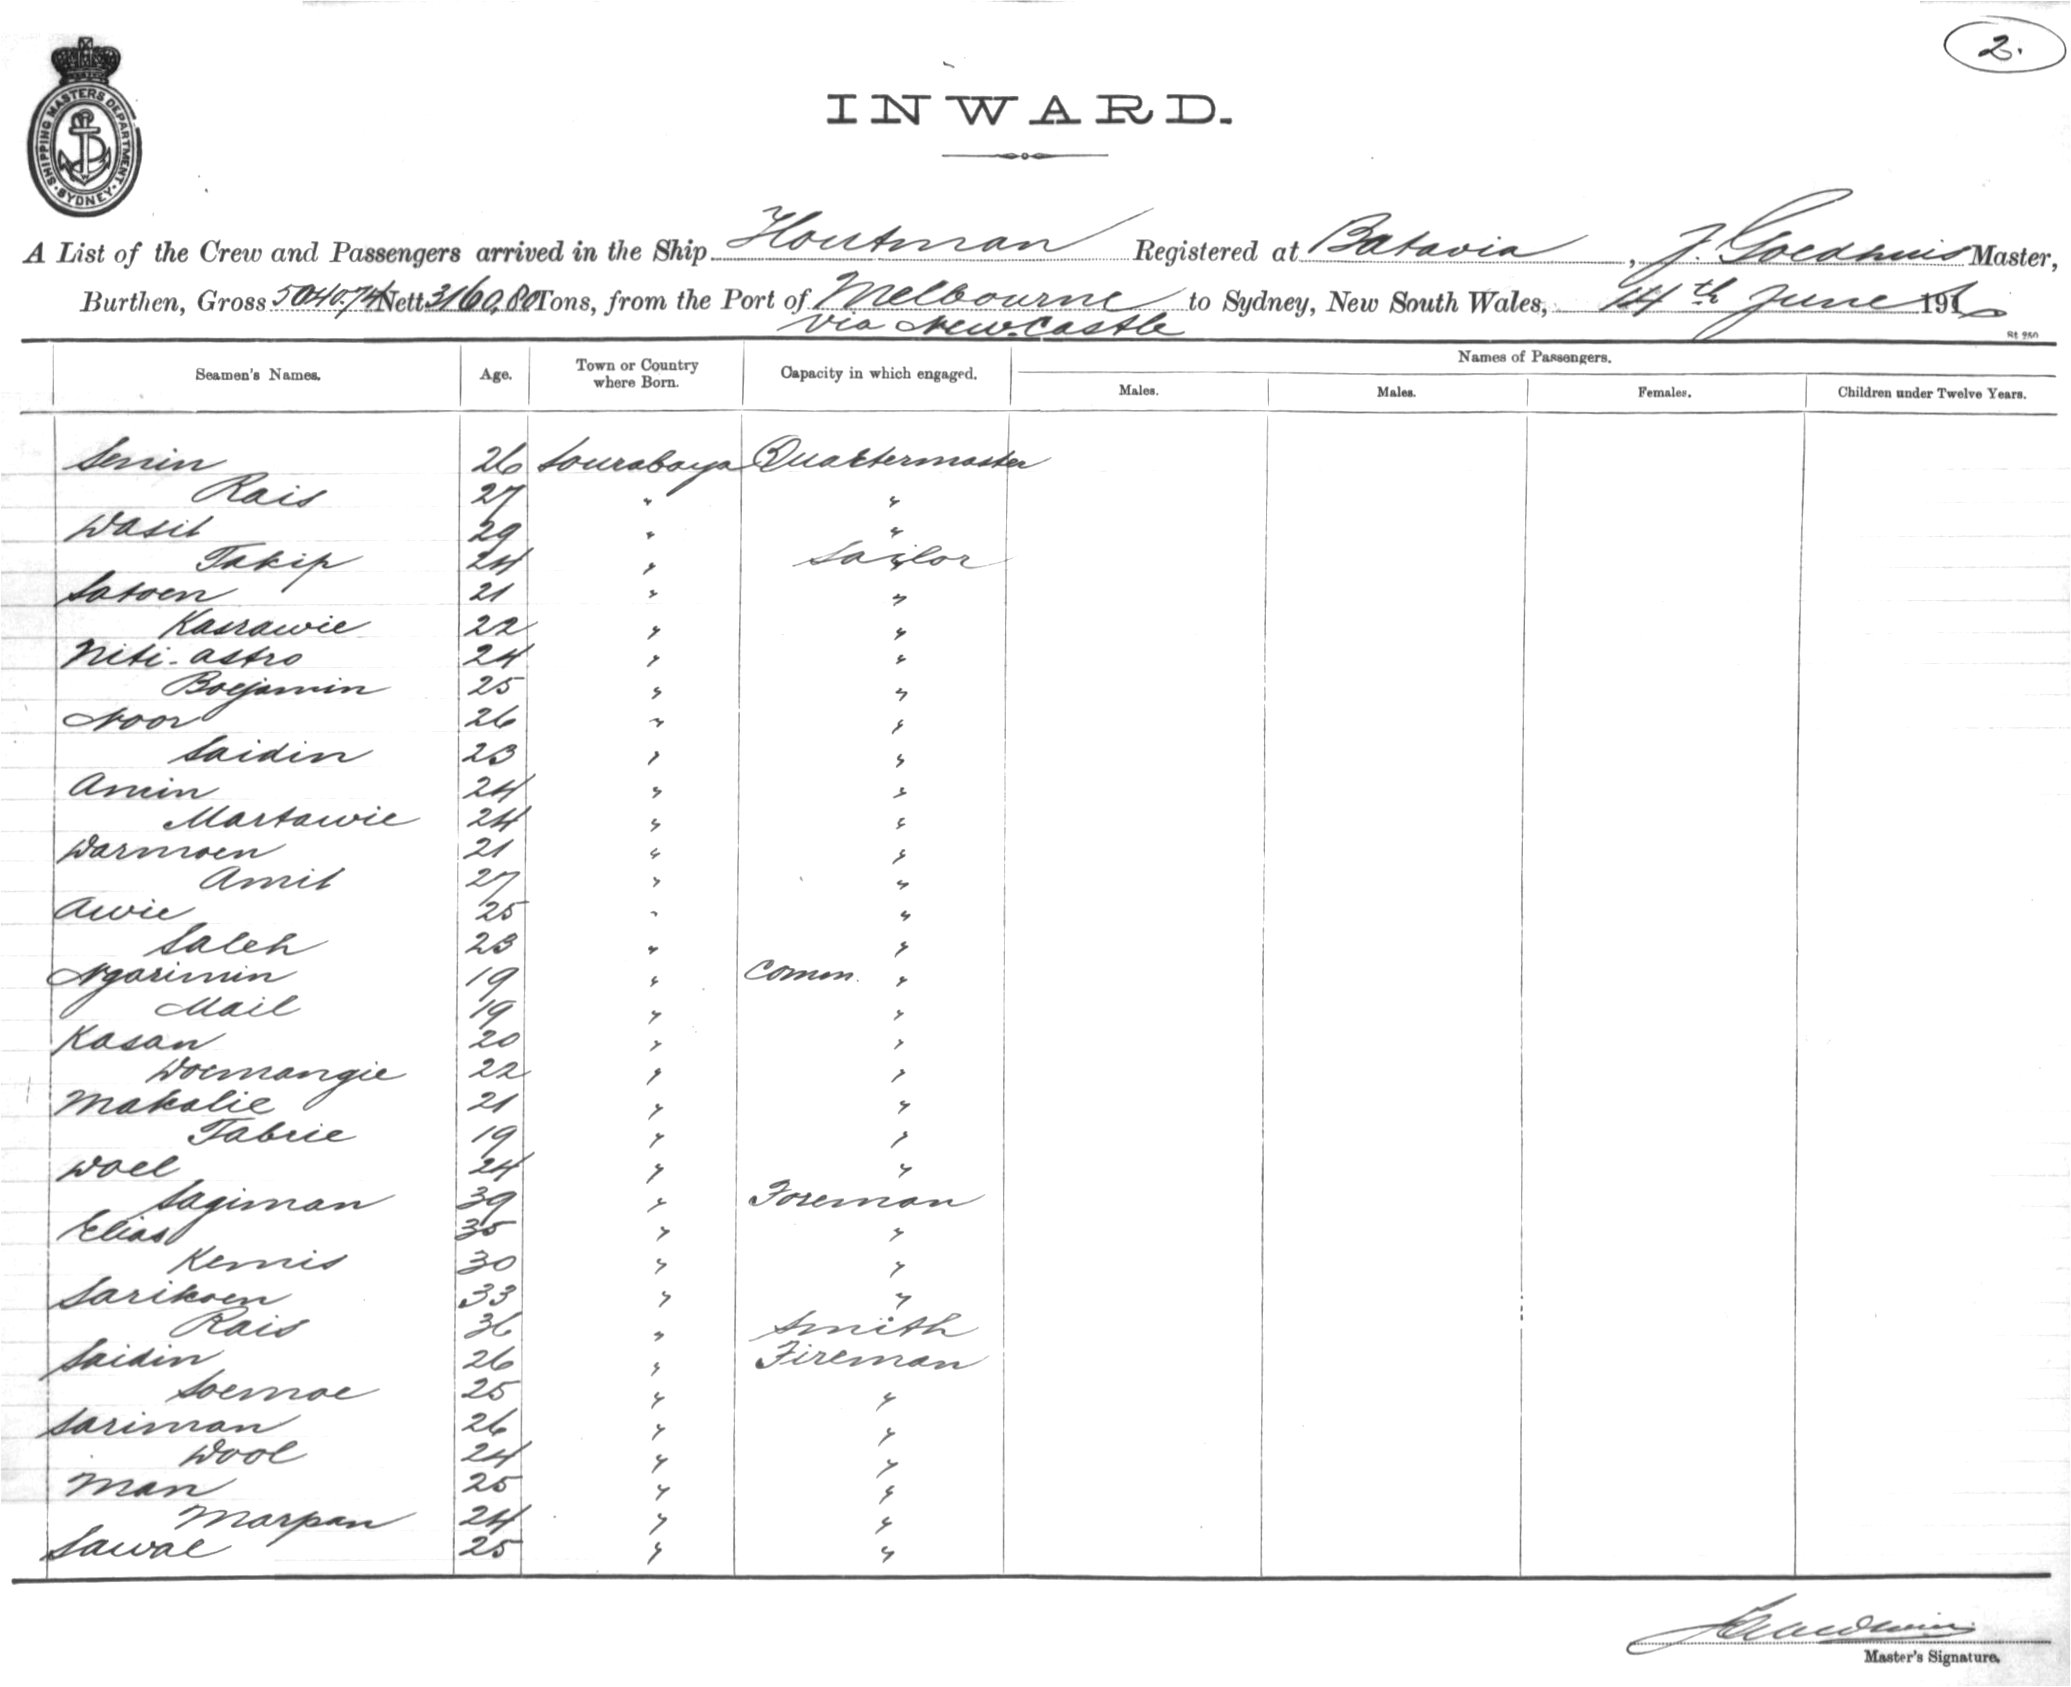 2.
SHIPPING MASTERS DEPARTMENT SYDNEY
INWARD.
A List of the Crew and Passengers arrived in the Ship Houtman Registered at Batavia, J. Goedhuis Master,
Burthen, Gross 5040.74 Nett 3160,80 Tons, from the Port of Melbourne to Sydney, New South Wales, 14th June 191
via Newcastle
Seamen's Names. Age. Town or Country where Born. Capacity in which engaged. Names of Passengers.
Males. Males. Females. Children under Twelve Years.
Senin 26 Sourabaya Quartermaster
Rais 27 " "
Wasit 29 " "
Takip 24 " Sailor
Satoen 21 " "
Kasrawie 22 " "
Niti-astro 24 " "
Boejamin 25 " "
Noor 26 " "
Saidin 23 " "
Amin 24 " "
Martawie 24 " "
Warmoen 21 " "
Amit 27 " "
Awie 25 " "
Saleh 23 " "
Ngarimin 19 " Comm. "
Mail 19 " "
Kasan 20 " "
Woemangie 22 " "
Makalie 21 " "
Tabrie 19 " "
Woel 24 " "
Sagiman 39 " Foreman
Elias 35 " "
Kemis 30 " "
Sarikoen 33 " "
Rais 36 " Smith
Saidin 26 " Fireman
Soemoe 25 " "
Sariman 26 " "
Wool 24 " "
Man 25 " "
Marpan 24 " "
Sawal 25 " "
Master's Signature.